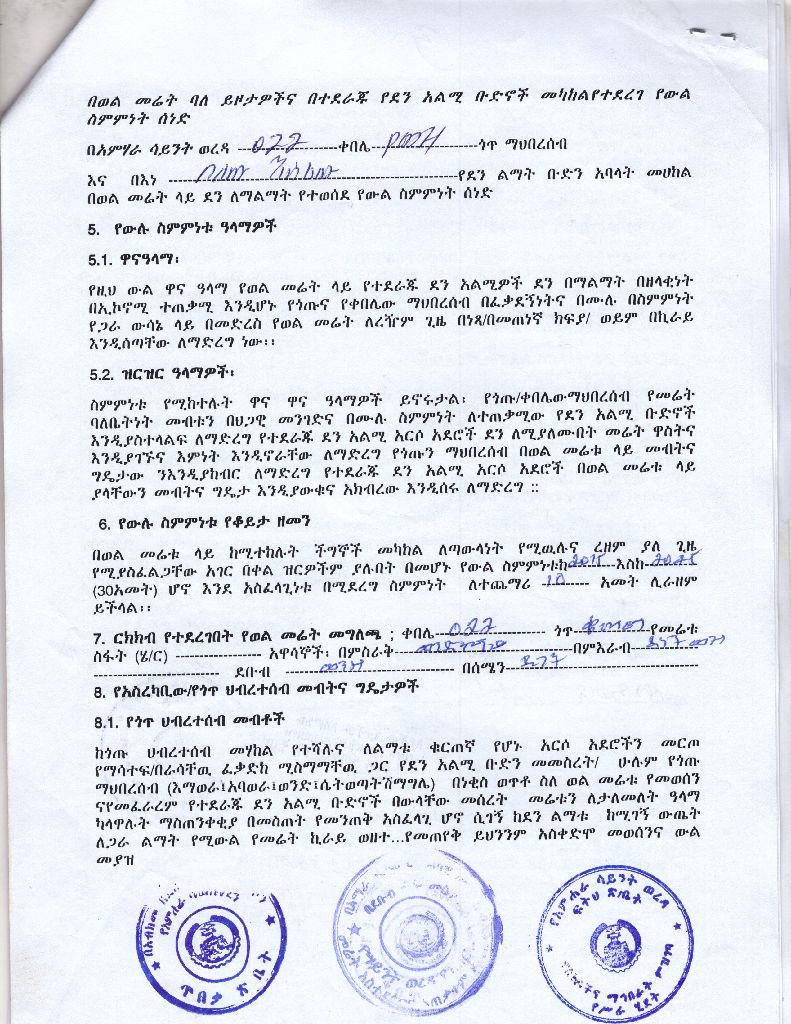 በወል መሬት ባለ ይዞታዎችና በተደራጁ የደን አልሚ ቡድኖች መካከልየተደረገ የውል
ስምምነት ሰነድ
በአምሃራ ሳይንት ወረዳ 022 ቀበሌ ጎጥ ማህበረሰብ
እና በእነ የደን ልማት ቡድን አባላት መሀከል
በወል መሬት ላይ ደን ለማልማት የተወሰደ የውል ስምምነት ሰነድ
5. የውሉ ስምምነቱ ዓላማዎች
5.1. ዋናዓላማ፡
የዚህ ውል ዋና ዓላማ የወል መሬት ላይ የተደራጁ ደን አልሚዎች ደን በማልማት በዘላቂነት
በኢኮኖሚ ተጠቃሚ እንዲሆኑ የጎጡና የቀበሌው ማህበረሰብ በፈቃደኝነትና በሙሉ በስምምነት
የጋራ ውሳኔ ላይ በመድረስ የወል መሬት ለረዥም ጊዜ በነጻ/በመጠነኛ ክፍያ/ ወይም በኪራይ
እንዲሰጣቸው ለማድረግ ነው፡፡
5.2. ዝርዝር ዓላማዎች፡
ስምምነቱ የሚከተሉት ዋና ዋና ዓላማዎች ይኖሩታል፡ የጎጡ/ቀበሌውማህበረሰብ የመሬት
ባለቤትነት መብቱን በህጋዊ መንገድና በሙሉ ስምምነት ለተጠቃሚው የደን አልሚ ቡድኖች
እንዲያስተላልፍ ለማድረግ የተደራጁ ደን አልሚ አርሶ አደሮች ደን ለሚያለሙበት መሬት ዋስትና
እንዲያገኙና እምነት እንዲኖራቸው ለማድረግ የጎጡን ማህበረሰብ በወል መሬቱ ላይ መብትና
ግዴታው ንእንዲያከብር ለማድረግ የተደራጁ ደን አልሚ አርሶ አደሮች በወል መሬቱ ላይ
ያላቸውን መብትና ግዴታ እንዲያውቁና አክብረው እንዲሰሩ ለማድረግ ::
6. የውሉ ስምምነቱ የቆይታ ዘመን
በወል መሬቱ ላይ ከሚተከሉት ችግኞች መካከል ለጣውላነት የሚዉሉና ረዘም ያለ ጊዜ
የሚያስፈልጋቸው አገር በቀል ዝርዎችም ያሉበት በመሆኑ የውል ስምምነቱከ 2015 እስከ 2025
(30አመት) ሆኖ እንደ አስፈላጊነቱ በሚደረግ ስምምነት ለተጨማሪ 10 አመት ሊራዘም
ይችላል፡፡
7. ርክክብ የተደረገበት የወል መሬት መግለጫ ; ቀበሌ 022 ጎጥ የመሬቱ
ስፋት (ሄ/ር) አዋሳኞች፡ በምስራቅ በምእራብ
ደቡብ መንገድ በሰሜን
8. የአስረካቢው/የጎጥ ህብረተሰብ መብትና ግዴታዎች
8.1. የጎጥ ህብረተሰብ መብቶች
ከጎጡ ህብረተሰብ መሃከል የተሻሉና ለልማቱ ቁርጠኛ የሆኑ አርሶ አደሮችን መርጦ
የማሳተፍ/በራሳቸዉ ፈቃድከ ሚስማማቸዉ ጋር የደን አልሚ ቡድን መመስረት/ ሁሉም የጎጡ
ማህበረሰብ (እማወራ፤አባወራ፤ወንድ፤ሴትወጣትሽማግሌ) በነቂስ ወጥቶ ስለ ወል መሬቱ የመወሰን
ናየመፈራረም የተደራጁ ደን አልሚ ቡድኖች በውላቸው መሰረት መሬቱን ለታለመለት ዓላማ
ካላዋሉት ማስጠንቀቂያ በመስጠት የመንጠቅ አስፈላጊ ሆኖ ሲገኝ ከደን ልማቱ ከሚገኝ ውጤት
ለጋራ ልማት የሚውል የመሬት ኪራይ ወዘተ...የመጠየቅ ይህንንም አስቀድሞ መወሰንና ውል
መያዝ
ጥበቃ ጽ/ቤት
የአምሐራ ሳይንት ወረዳ
ፍትህ ጽ/ቤት
የሥራ ሂደት